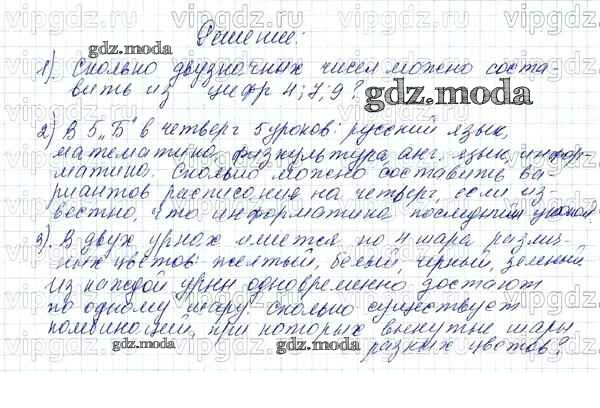 Решение:
1). Сколько двузначных чисел можно соста-
вить из цифр 4; 7; 9?
2) В 5 „Б" в четверг 5 уроков: русский язык,
математика, физкультура, анг. язык, инфор-
матика. Сколько можно составить ва-
риантов расписания на четверг, если из-
вестно, что информатика последний урокой?
3). В двух урнах имеется по 4 шара различ-
ных цветов: желтый, белый, черный, зеленый
из каждой урны одновременно достают
по одному шару. Сколько существует
комбинаций, при которых вынутые шары
разных цветов?
gdz.moda
gdz.moda
gdz.moda
gdz.moda
gdz.moda
vipgdz.com